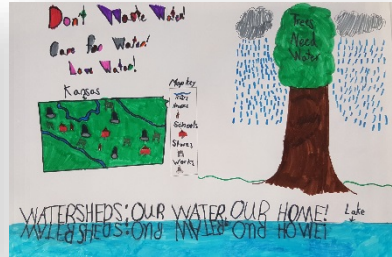 Don't Waste Water!
Care for Water!
Love Water!
Kansas
Map key
Schools
Stores
Works
Trees
Need
Water
WATERSHEDS: OUR WATER, OUR HOME!
Lake